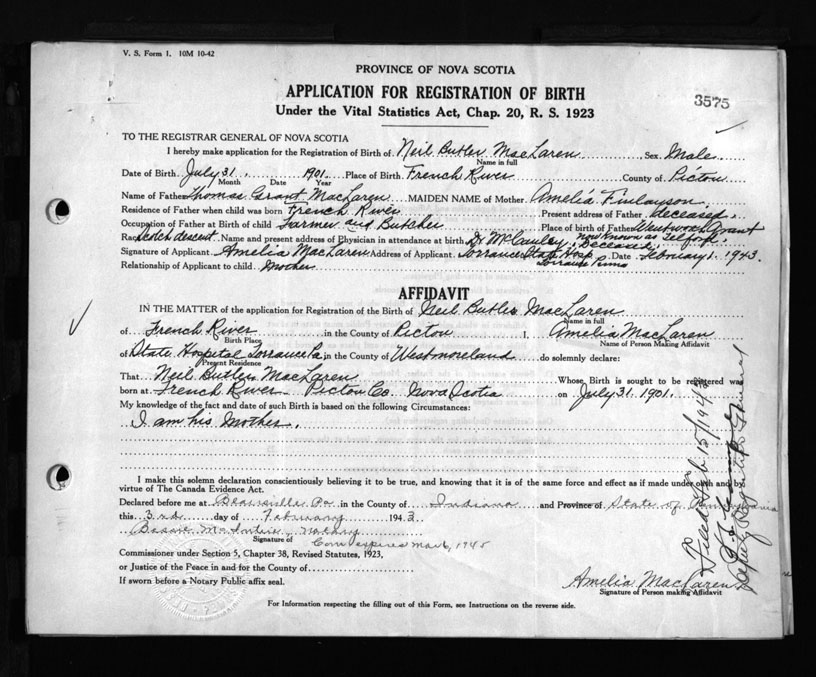 V. S. Form 1. 10M 10-42
PROVINCE OF NOVA SCOTIA
APPLICATION FOR REGISTRATION OF BIRTH
3575
Under the Vital Statistics Act, Chap. 20, R. S. 1923
TO THE REGISTRAR GENERAL OF NOVA SCOTIA
I hereby make application for the Registration of Birth of Neil Butler MacLaren Sex Male
Name in full
Date of Birth July 31 1901 Place of Birth French River County of Pictou
Month Date Year
Name of Father Thomas Grant MacLaren MAIDEN NAME of Mother Amelia Finlayson
Residence of Father when child was born French River Present address of Father deceased.
Occupation of Father at Birth of child Farmer and Butcher Place of Birth of Father Westward Grant
now known as Telford.
Race Scotch descent Name and present address of Physician in attendance at birth Dr McCauley, Deceased.
Signature of Applicant Amelia MacLaren Address of Applicant Torrance State Hosp Date February 1. 1943.
Torrance Penna
Relationship of Applicant to child. Mother
AFFIDAVIT
IN THE MATTER of the application for Registration of the Birth of Neil Butler MacLaren
Name in full
of French River in the County of Pictou I, Amelia MacLaren
Birth Place Name of Person Making Affidavit
of State Hospital Torrance Pa. in the County of Westmoreland do solemnly declare:
Present Residence
That Neil Butler MacLaren Whose Birth is sought to be registered was
born at French River Pictou Co. Nova Scotia on July 31. 1901.
My knowledge of the fact and date of such Birth is based on the following Circumstances:
I am his Mother.
I make this solemn declaration conscientiously believing it to be true, and knowing that it is of the same force and effect as if made under oath and by
virtue of The Canada Evidence Act.
Declared before me at Blairsville Pa in the County of Indiana and Province of State of Pennsylvania
this 3rd day of February 1943
Bessie notary
Signature of Com expires Mar 1945
Commissioner under Section 5, Chapter 38, Revised Statutes, 1923,
or Justice of the Peace in and for the County of
If sworn before a Notary Public affix seal.
Amelia MacLaren
Signature of Person making Affidavit
For Information respecting the filling out of this Form, see Instructions on the reverse side.
Filed Feb 15/1943
Deputy Registrar General